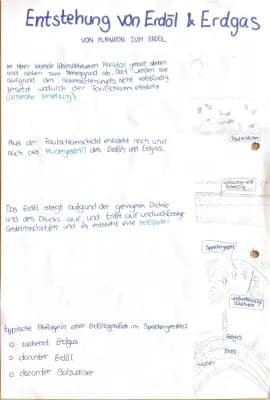 Entstehung von Erdöl & Erdgas
VON PLANKTON ZUM ERDÖL
Im Meer lebende Kleinstlebewesen Plankton genannt sterben
und sinken zum Meeresgrund ab. Dort werden sie
aufgrund des Sauerstoffmangels nicht vollständig
zersetzt wodurch der Faulschlamm entsteht
(anaerobe Zersetzung).
Faulschlamm
Aus der Faulschlammschicht entsteht nach und
nach das Muttergestein des Erdöls und Erdgases.
Das Erdöl steigt aufgrund der geringen Dichte
und des Drucks auf und trifft auf undurchlässige
Gesteinsschichten und es entsteht eine
Speichergestein
undurchlässige
typische Abfolge in einer Erdöllagerstätte im Speichergestein:
o zuoberst Erdgas
o darunter Erdöl
o darunter Salzwasser
Erdgas
Erdöl
Wasser